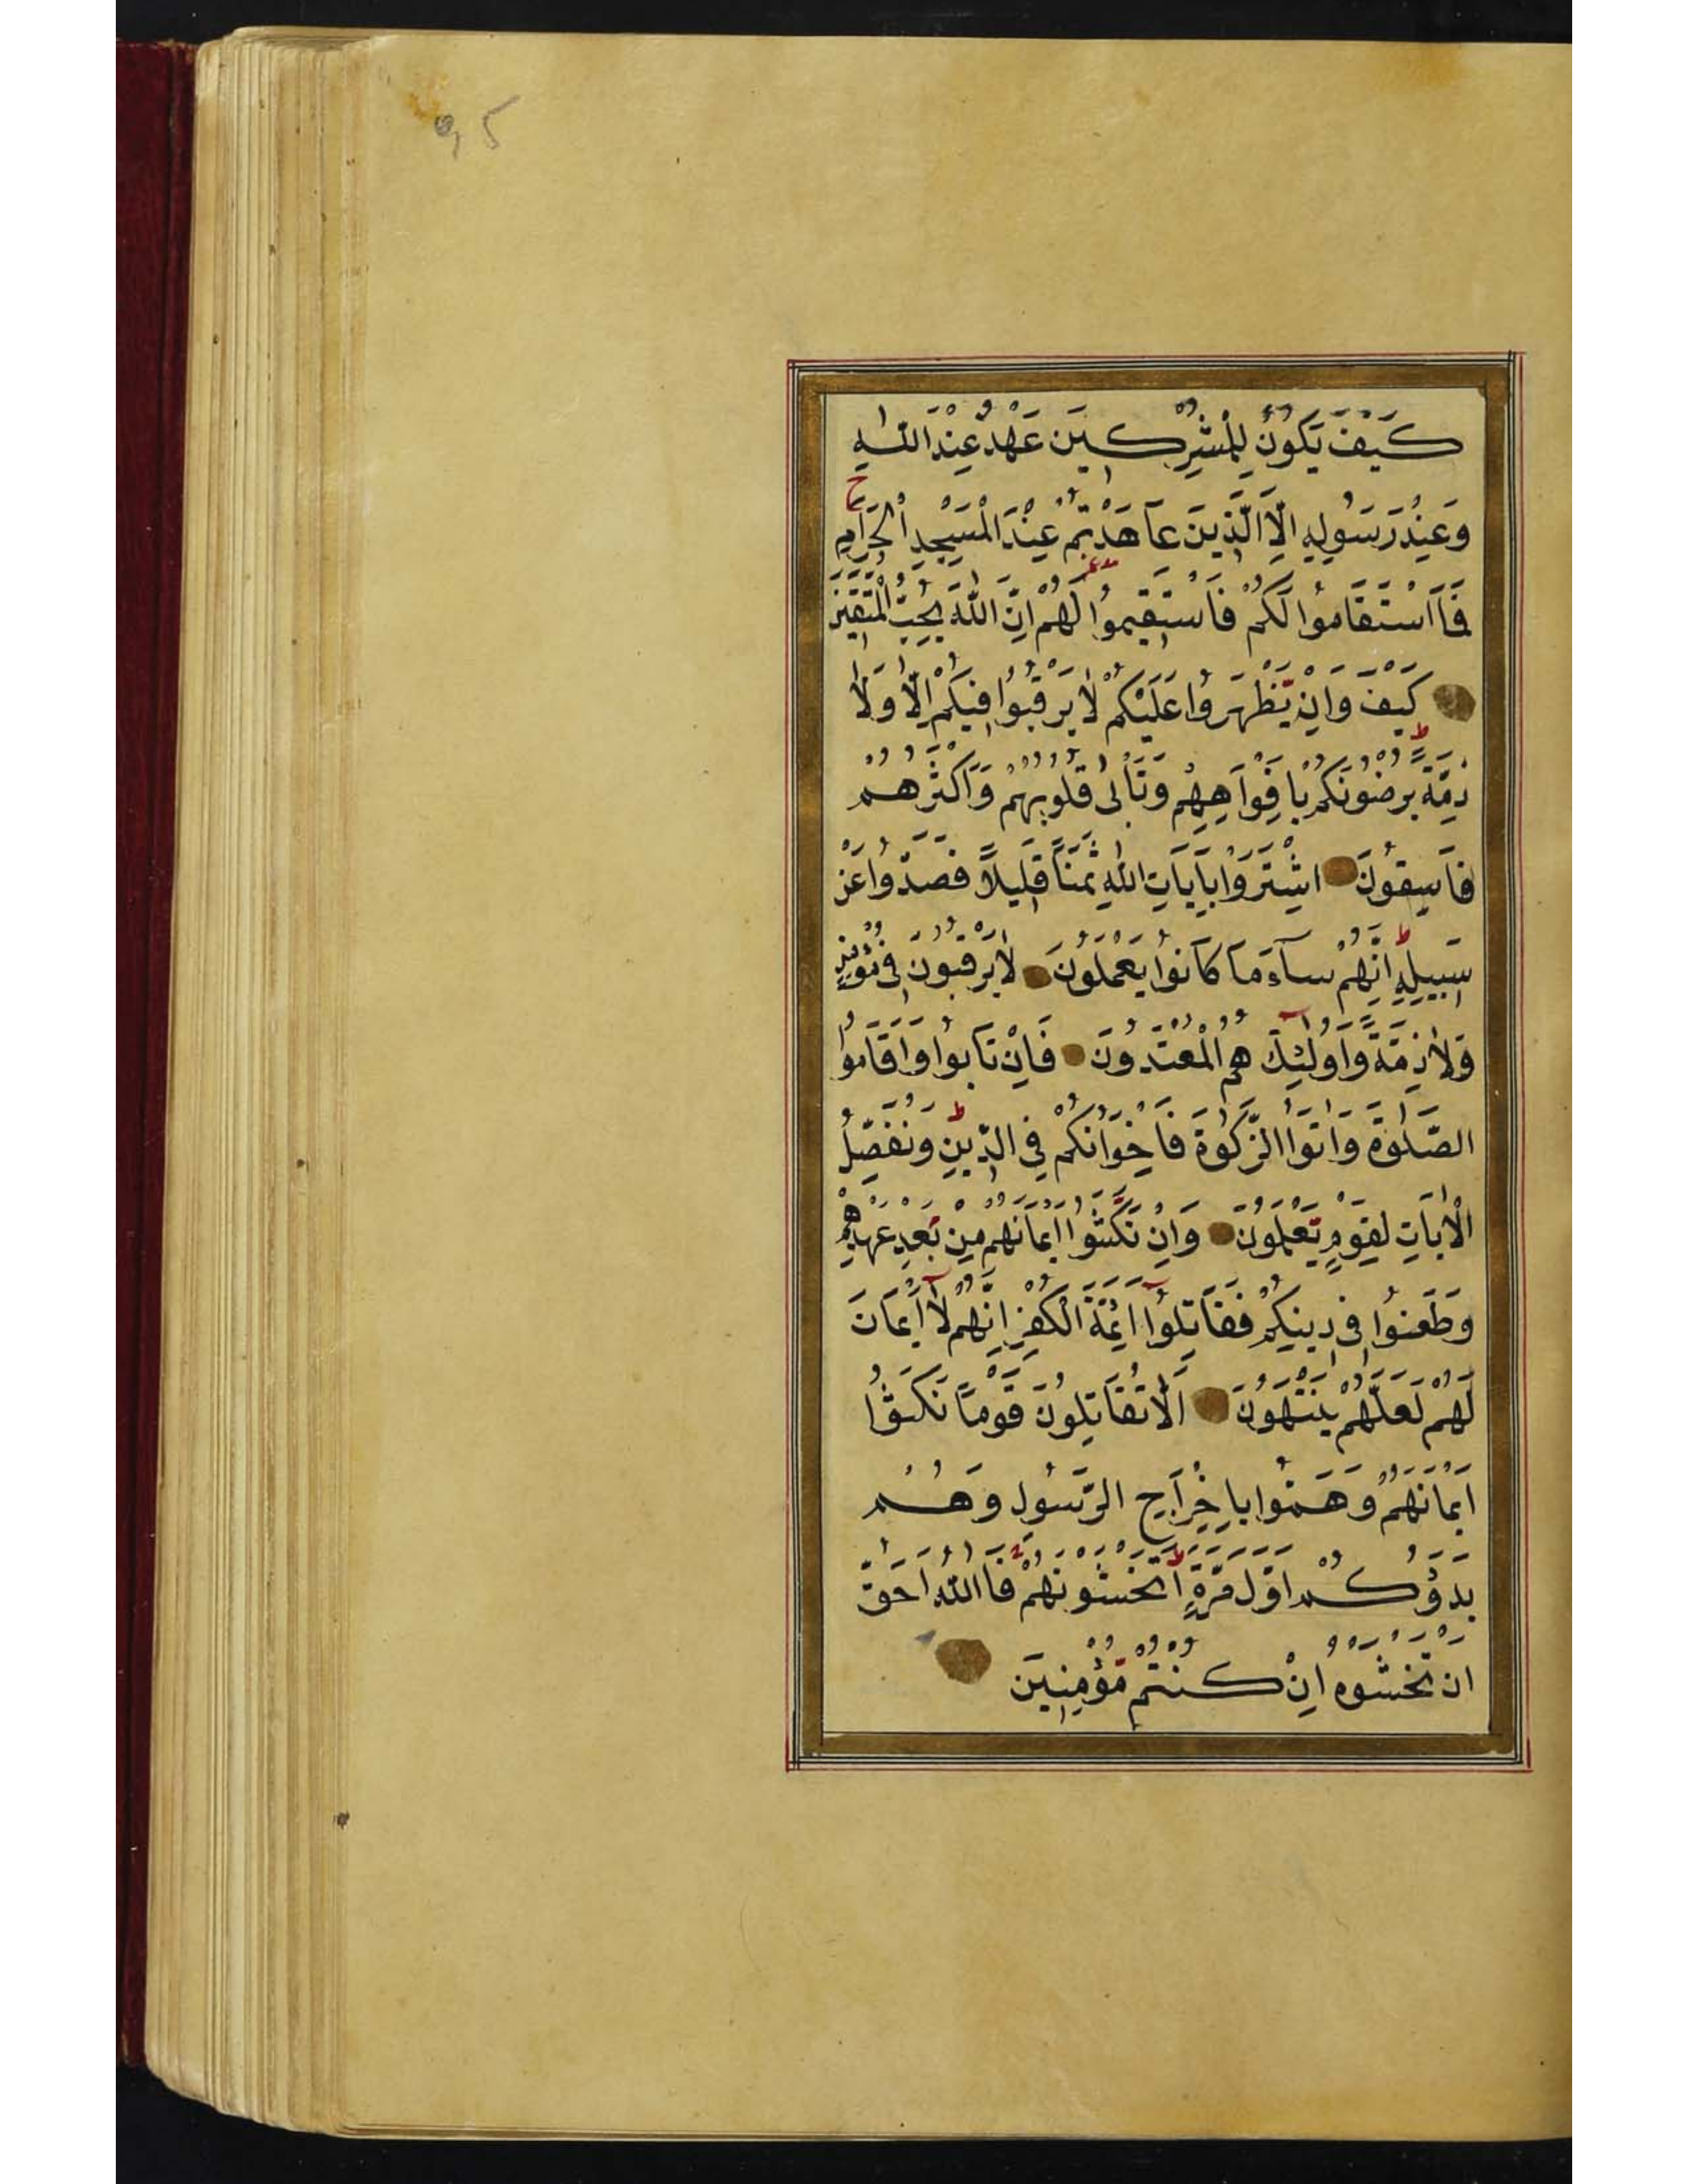 95
كَيْفَ يَكُونُ لِلْمُشْرِكِينَ عَهْدٌ عِنْدَ اللّٰهِ
وَعِنْدَ رَسُولِهِ اِلَّا الَّذِينَ عَاهَدْتُمْ عِنْدَ الْمَسْجِدِ الْحَرَامِ ج
فَمَا اسْتَقَامُوا لَكُمْ فَاسْتَقِيمُوا لَهُمْ اِنَّ اللّٰهَ يُحِبُّ الْمُتَّقِينَ
كَيْفَ وَاِنْ يَظْهَرُوا عَلَيْكُمْ لَا يَرْقُبُوا فِيكُمْ اِلًّا وَلَا
ذِمَّةً ط يُرْضُونَكُمْ بِاَفْوَاهِهِمْ وَتَأْبٰى قُلُوبُهُمْ وَاَكْثَرُهُمْ
فَاسِقُونَ اشْتَرَوْا بِاٰيَاتِ اللّٰهِ ثَمَنًا قَلِيلًا فَصَدُّوا عَنْ
سَبِيلِهِ ط اِنَّهُمْ سَآءَ مَا كَانُوا يَعْمَلُونَ لَا يَرْقُبُونَ فِى مُؤْمِنٍ
وَلَا ذِمَّةً وَاُولٰٓئِكَ هُمُ الْمُعْتَدُونَ فَاِنْ تَابُوا وَاَقَامُوا
الصَّلٰوةَ وَاٰتَوُا الزَّكٰوةَ فَاِخْوَانُكُمْ فِى الدِّينِ ط وَنُفَصِّلُ
الْاٰيَاتِ لِقَوْمٍ يَعْلَمُونَ وَاِنْ نَكَثُوا اَيْمَانَهُمْ مِنْ بَعْدِ عَهْدِهِمْ
وَطَعَنُوا فِى دِينِكُمْ فَقَاتِلُوٓا اَئِمَّةَ الْكُفْرِ اِنَّهُمْ لَآ اَيْمَانَ
لَهُمْ لَعَلَّهُمْ يَنْتَهُونَ اَلَا تُقَاتِلُونَ قَوْمًا نَكَثُوا
اَيْمَانَهُمْ وَهَمُّوا بِاِخْرَاجِ الرَّسُولِ وَهُمْ
بَدَؤُكُمْ اَوَّلَ مَرَّةٍ ط اَتَخْشَوْنَهُمْ فَاللّٰهُ اَحَقُّ
اَنْ تَخْشَوْهُ اِنْ كُنْتُمْ مُؤْمِنِينَ